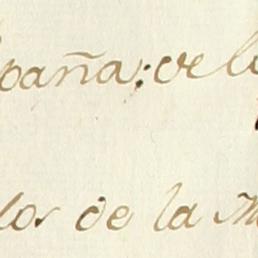 spaña: de l
los de la M